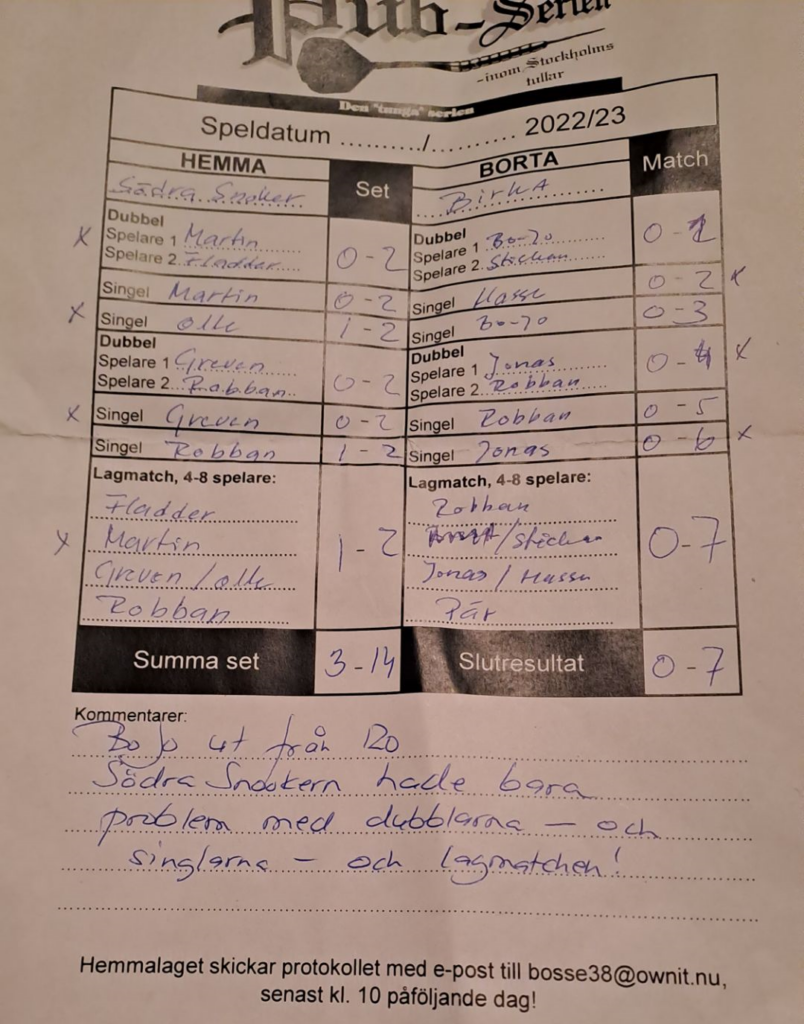 Pub-Serien
-inom Stockholms
tullar
Den "tunga" serien
Speldatum ........../.............. 2022/23
HEMMA Set BORTA Match
Södra Snoker BirkA
Dubbel
Spelare 1 Martin
Spelare 2 Fladder
0-2
Dubbel
Spelare 1 Bo-Jo
Spelare 2 Stickan
x
Singel Martin 0-2 Singel Hasse 0-2 x
x Singel Olle 1-2 Singel Bo-Jo 0-3
Dubbel
Spelare 1 Greven
Spelare 2 Robban
0-2
Dubbel
Spelare 1 Jonas
Spelare 2 Robban
0-4 x
x Singel Greven 0-2 Singel Robban 0-5
Singel Robban 1-2 Singel Jonas 0-6 x
Lagmatch, 4-8 spelare: Lagmatch, 4-8 spelare:
Fladder Robban
x Martin 1-2 /Stickan 0-7
Greven/Olle Jonas/Hasse
Robban Pär
Summa set 3-14 Slutresultat 0-7
Kommentarer:
Bo Jo ut från 120
Södra Snookern hade bara
problem med dubblarna – och
singlarna – och lagmatchen!
Hemmalaget skickar protokollet med e-post till bosse38@ownit.nu,
senast kl. 10 påföljande dag!